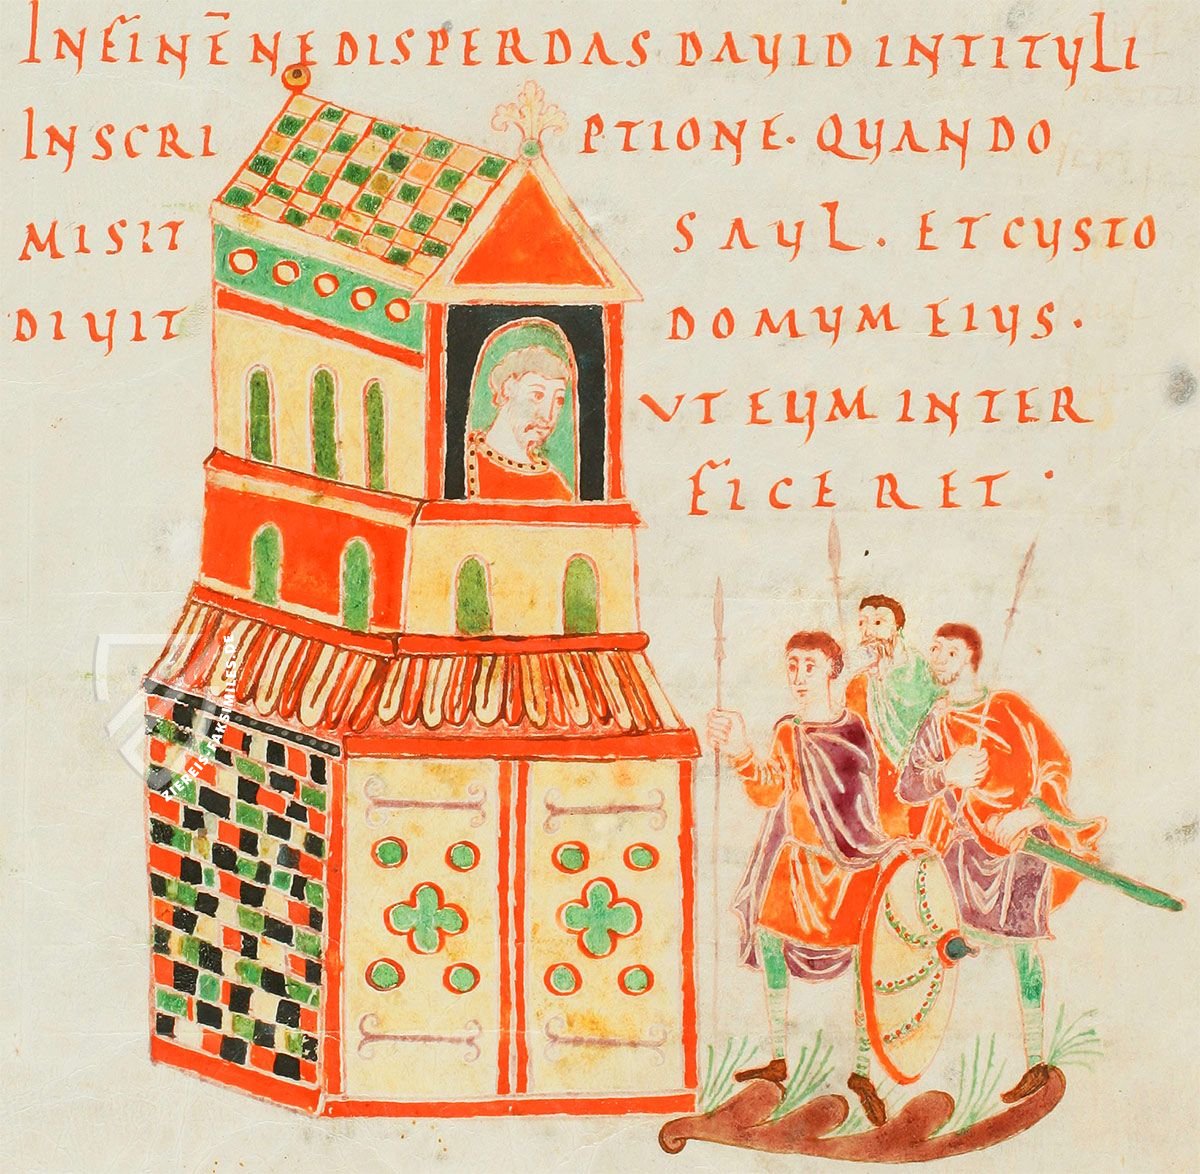 IN FINĒ NE DISPERDAS DAVID IN TITVLI
INSCRI PTIONE. QVANDO
MISIT SAVL. ET CVSTO
DIVIT DOMVM EIVS.
VT EVM INTER
FICERET.
ZIEREIS-FAKSIMILES.DE